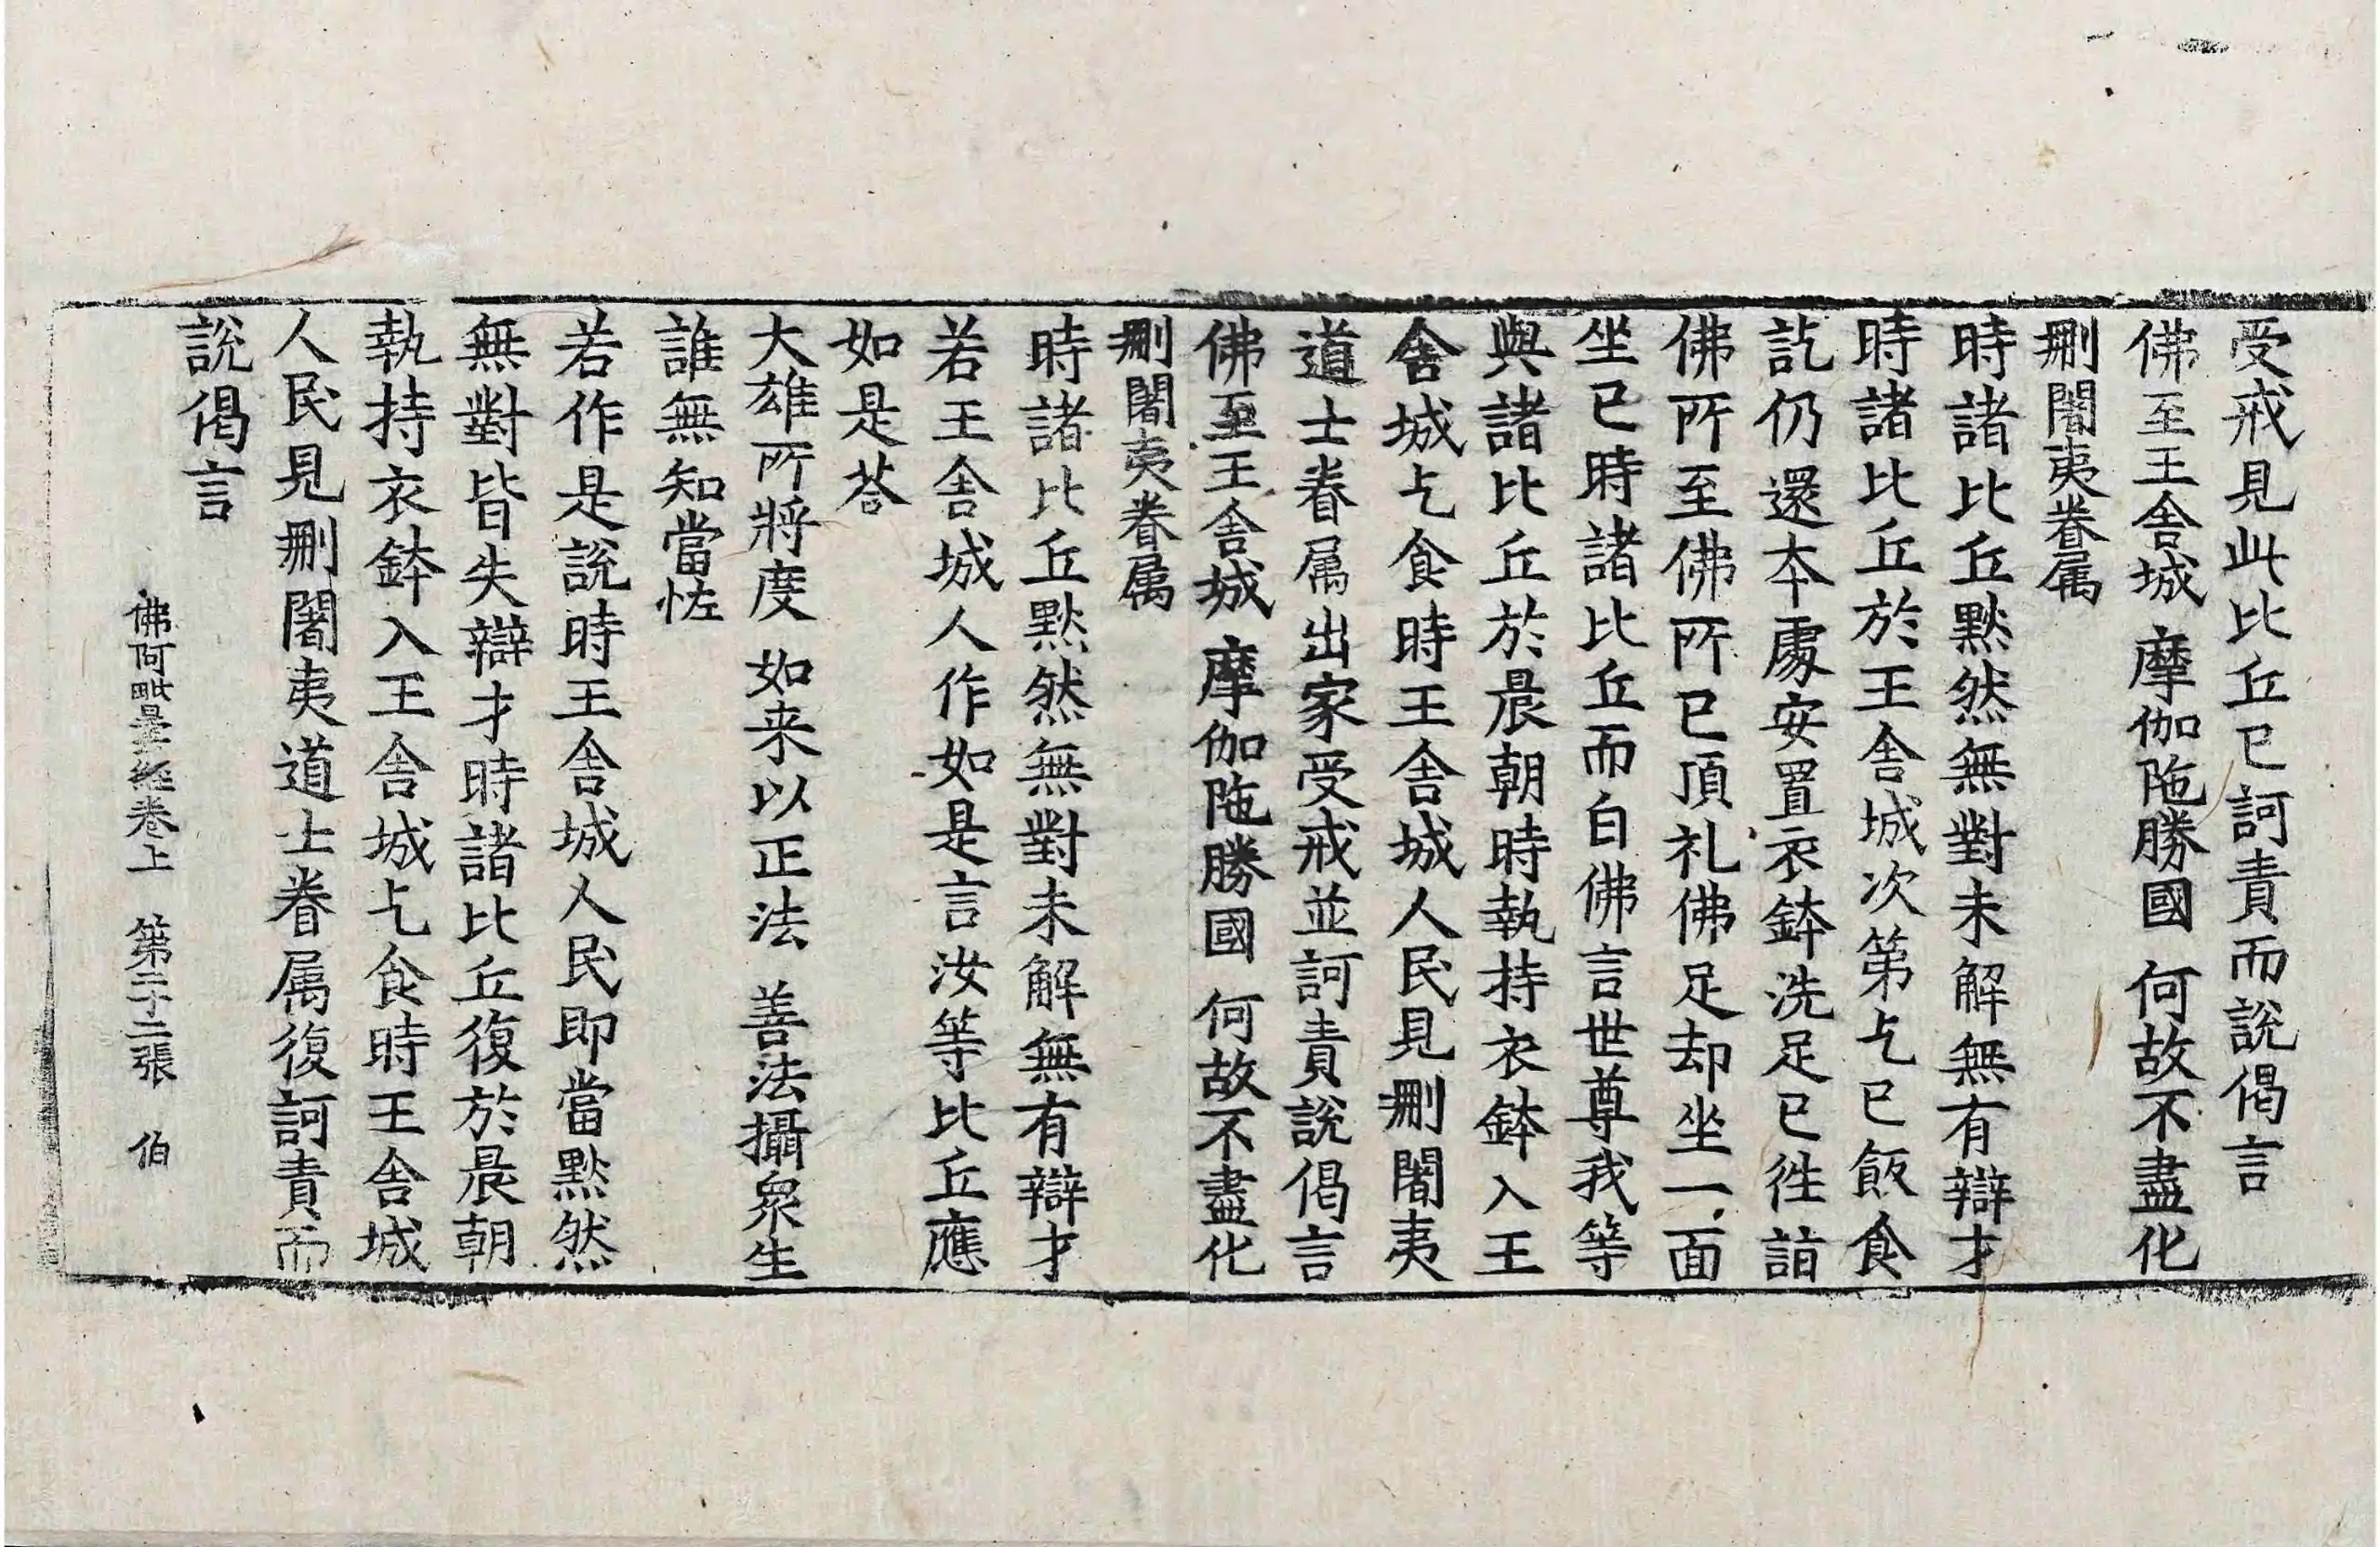 受戒見此比丘已訶責而說偈言
佛至王舍城 摩伽陁勝國 何故不盡化
刪闍夷眷属
時諸比丘黙然無對未解無有辯才
時諸比丘於王舍城次第乞已飯食
訖仍還本處安置衣鉢洗足已徃詣
佛所至佛所已頂礼佛足却坐一面
坐已時諸比丘而白佛言世尊我等
與諸比丘於晨朝時執持衣鉢入王
舍城乞食時王舍城人民見刪闍夷
道士眷属出家受戒並訶責說偈言
佛至王舍城 摩伽陁勝國 何故不盡化
刪闍夷眷属
時諸比丘黙然無對未解無有辯才
若王舍城人作如是言汝等比丘應
如是荅
大雄所將度 如来以正法 善法攝衆生
誰無知當恠
若作是說時王舍城人民即當黙然
無對皆失辯才時諸比丘復於晨朝
執持衣鉢入王舍城乞食時王舍城
人民見刪闍夷道士眷属復訶責而
說偈言
佛阿毗曇經卷上 第二十二張 伯